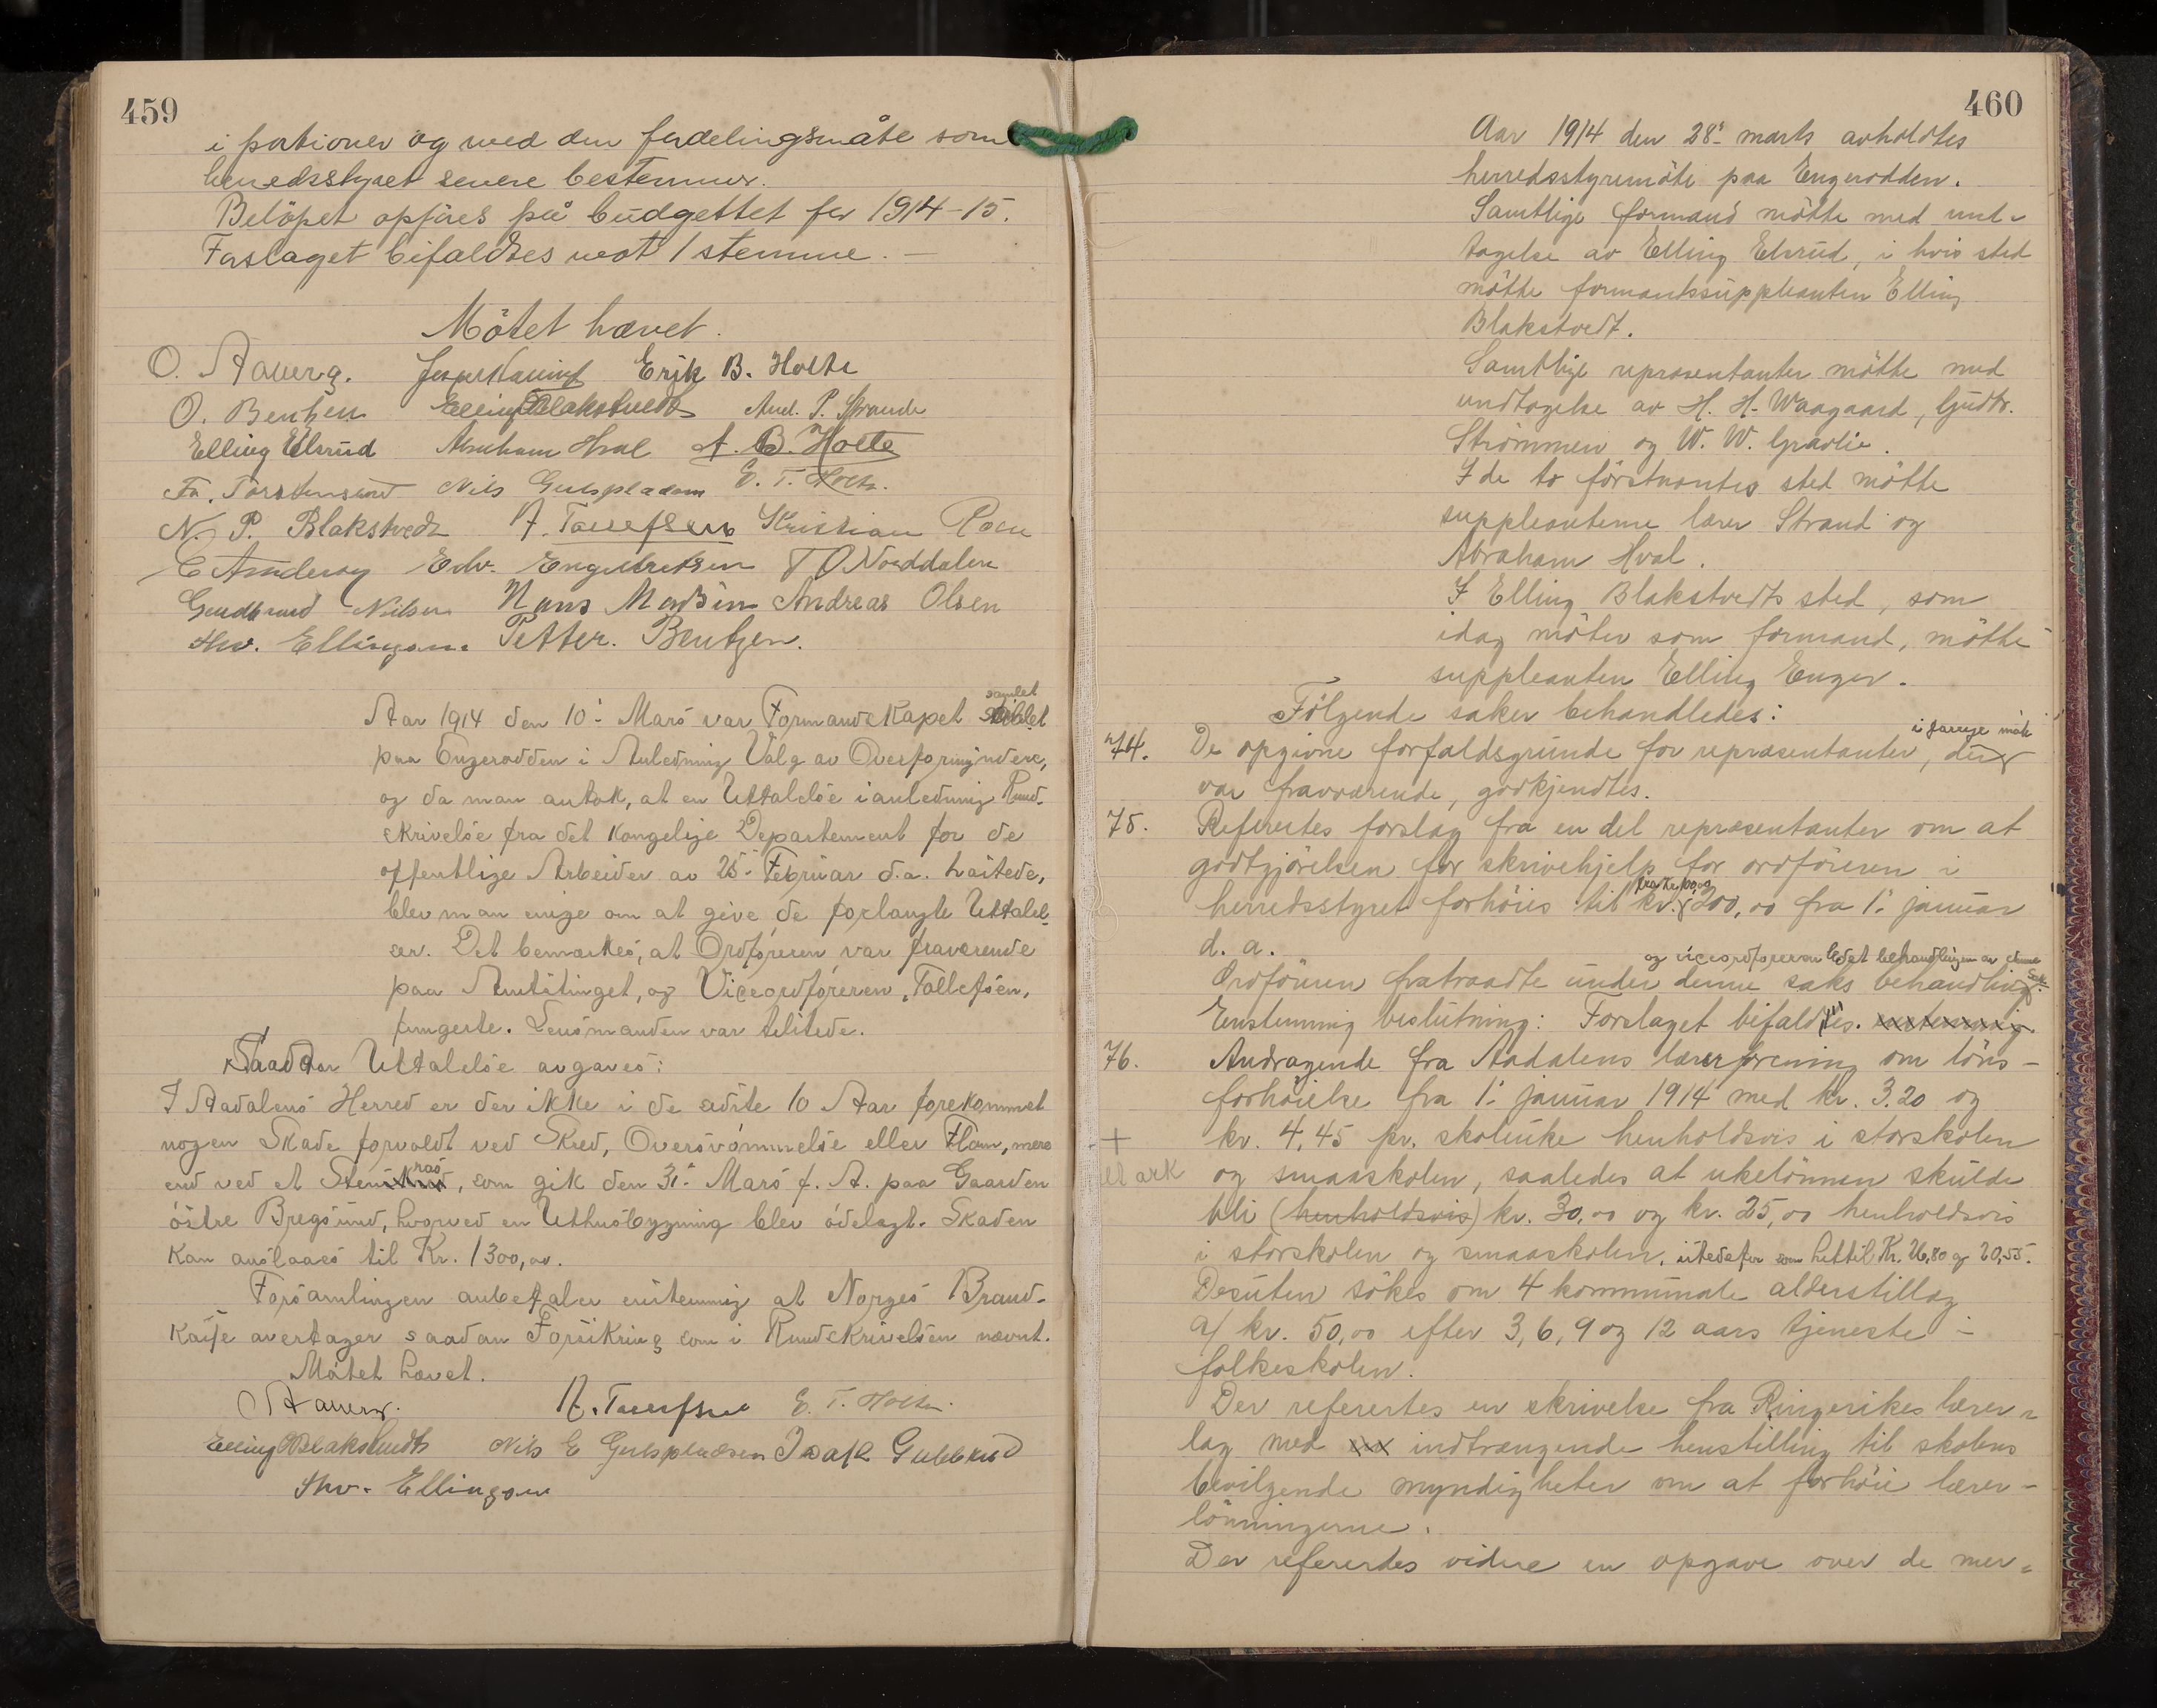 459
i portioner og med den fordelingsmåte som
herredsstyret senere bestemmer.
Belöpet opföres på budgettet for 1914-15.
Forslaget bifaldtes mot 1 stemme. –
Mötet hævet.
O. Aaberg. Erik B. Holte
O. Bentzen Elling Blakstvedt And. P. Strande
Elling Elsrud Abraham Hval A. B. Holte
Fr. Torstensrud Nils Gulspladsen E. T. Holte.
N. P. Blakstvedt A. Tollefsen Kristian
C Amdersen Edv. Engebretsen T O Norddalen
Gudbrand Nilsen Hans Madsen Andreas Olsen
Thv. Ellingsen. Petter. Bentzen.
samlet
Aar 1914 den 10: Mars var Formandskapet
paa Engerodden i Anledning Valg av Overformyndere,
og da man antok, at en Uttalelse i anledning Rund-
skrivelse fra det Kongelige Departement for de
offentlige Arbeider av 25: Februar d.a. hastede,
blev man enige om at give de forlangte Uttalel-
ser. Det bemærkes, at Ordføreren var fraværende
paa Amtstinget, og Viceordføreren, Tollefsen,
fungerte. Lensmanden var tilstede.
Saadan Uttalelse avgaves:
I Aadalens Herred er der ikke i de sidste 10 Aar forekommet
nogen Skade forvoldt ved Skred, Oversvømmelse eller Flom, mere
ras
end ved et Sten, som gik den 31: Mars f. A. paa Gaarden
östre Bregsund, hvorved en Uthusbygning blev ödelagt. Skaden
kan anslaaes til Kr. 1300,00.
Forsamlingen anbefaler enstemmig at Norges Brand-
kasse overtager saadan Forsikring som i Rundskrivelsen nævnt.
Mötet hævet.
O Aaberg. A. Tollefsen E. T. Holte.
Elling Blakstvedt Nils E Gulspladsen Isak Gulbrud
Thv. Ellingsen
460
Aar 1914 den 28: marts avholdtes
herredsstyremöte paa Engerodden.
Samtlige formænd mötte med und-
tagelse av Elling Elsrud, i hvis sted
mötte formandssuppleanten Elling
Blakstvedt.
Samtlige repræsentanter mötte med
undtagelse av H. H. Waagaard, Gudbr.
Strömmen og W. W. Gravlie.
I de to förstnævntes sted mötte
suppleanterne lærer Strand og
Abraham Hval.
I Elling Blakstvedts sted, som
idag möter som formand, mötte
suppleanten Elling Enger.
Fölgende saker behandledes:
i forrige möte
74. De opgivne forfaldsgrunde for repræsentanter, der
var fraværende, godkjendtes.
75. Refertes forslag fra en del repræsentanter om at
godtgjörelsen for skrivehjelp for ordföreren i
fra kr. 100,00
herredsstyret forhöies til kr. 200,00 fra 1: januar
d. a.
og viceordföreren ledet behandlingen av denne
Sak.
Ordföreren fratraadte under denne saks behandling
Enstemmig beslutning: Forslaget bifaldtes. enstemmig
76. Andragende fra Aadalens lærerforening om löns-
forhöielse fra 1: januar 1914 med kr. 3.20 og
+ kr. 4,45 pr. skoleuke henholdsvis i storskolen
og smaaskolen, saaledes at ukelönnen skulde
bli (henholdsvis) kr. 30,00 og kr. 25,00 henholdsvis
i storskolen og smaaskolen, istedefor som hittil Kr. 26,80 og 20,55.
Desuten sökes om 4 kommunale alderstillæg
a/ kr. 50,00 efter 3, 6, 9 og 12 aars tjeneste i
folkeskolen.
Der refertes en skrivelse fra Ringerikes lærer-
lag med indtrængende henstilling til skolens
bevilgende myndigheter om at forhöie lærer-
lönningerne.
Der refertes videre en opgave over de mer-